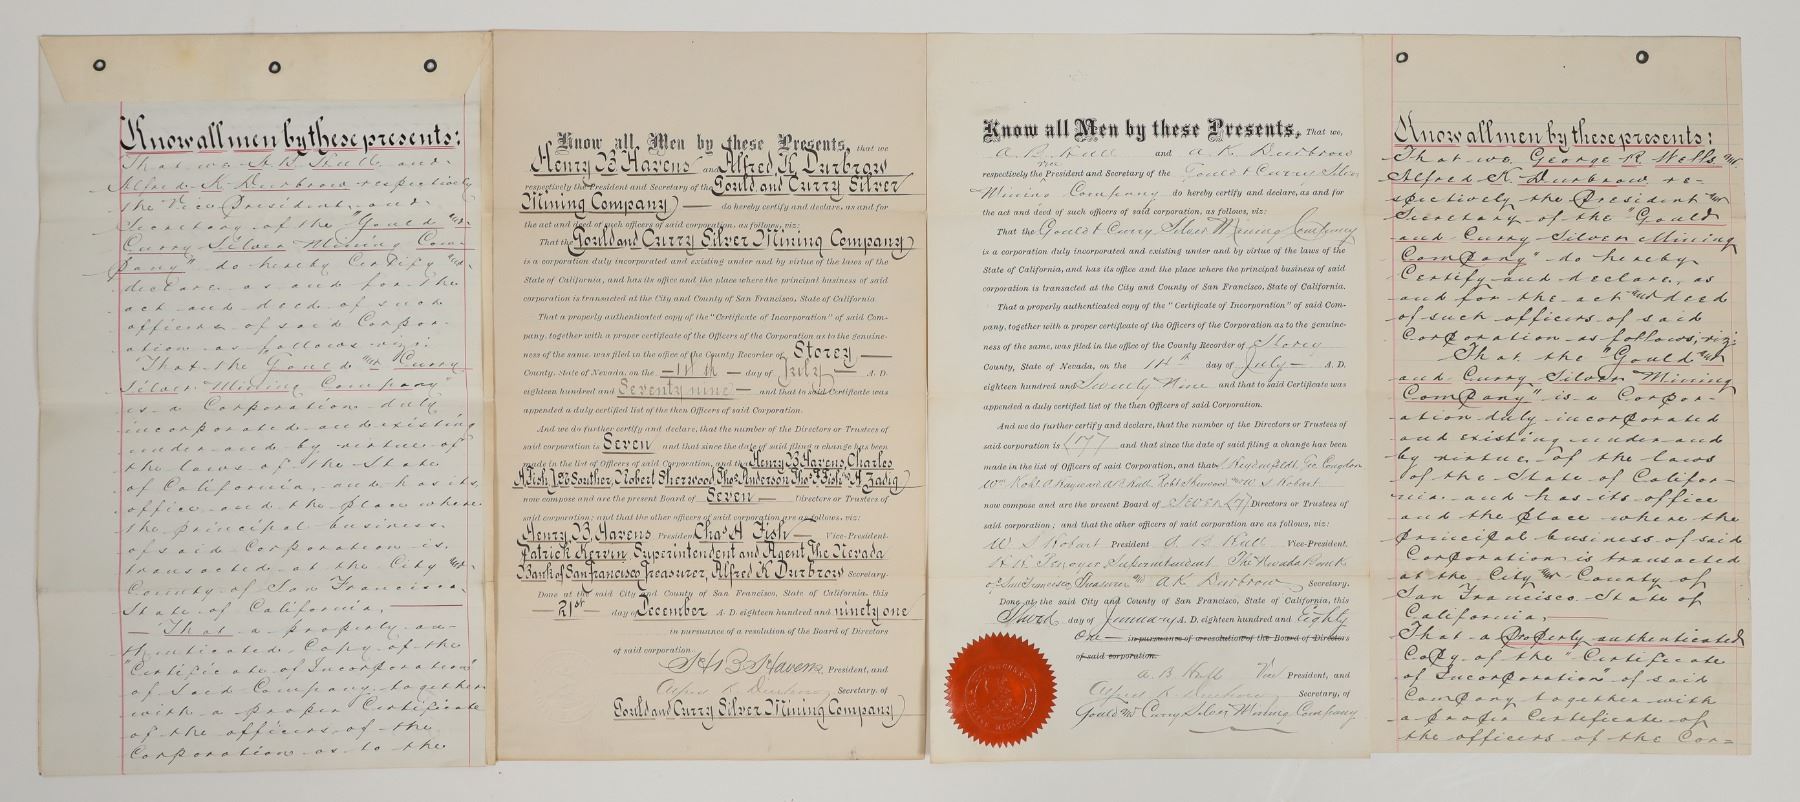 Know all men by these presents:
That we A B Hull and
Alfred K Durbrow respectively
the Vice President and
Secretary of the "Gould and
Curry Silver Mining Com-
pany" do hereby Certify and
declare as and for the
act and deed of such
officers of said Corpor-
ation as follows viz:
That the "Gould and Curry
Silver Mining Company"
is a Corporation duly
incorporated and existing
under and by virtue of
the laws of the State
of California, and has its
office and the place where
the principal business
of said Corporation is
transacted at the City and
County of San Francisco,
State of California,
That a properly au-
thenticated Copy of the
"Certificate of Incorporation"
of said Company together
with a proper Certificate
of the officers of the
Corporation as to the
Know all Men by these Presents, that we
Henry B Havens and Alfred K Durbrow
respectively the President and Secretary of the Gould and Curry Silver
Mining Company do hereby certify and declare, as and for
the act and deed of such officers of said corporation, as follows, viz:
That the Gould and Curry Silver Mining Company
is a corporation duly incorporated and existing under and by virtue of the laws of the
State of California, and has its office and the place where the principal business of said
corporation is transacted at the City and County of San Francisco, State of California
That a properly authenticated copy of the "Certificate of Incorporation" of said Com-
pany, together with a proper certificate of the Officers of the Corporation as to the genuine-
ness of the same, was filed in the office of the County Recorder of Storey
County, State of Nevada, on the 14th day of July A. D.
eighteen hundred and Seventy nine and that to said Certificate was
appended a duly certified list of the then Officers of said Corporation.
And we do further certify and declare, that the number of the Directors or Trustees of
said corporation is Seven and that since the date of said filing a change has been
made in the list of Officers of said Corporation, and that Henry B Havens, Charles
A Fish, J E Souther, Robert Sherwood Thos Anderson Thos F Fish and A Zadig
now compose and are the present Board of Seven Directors or Trustees of
said corporation; and that the other officers of said corporation are as follows, viz:
Henry B. Havens President Chas A Fish Vice-President
Patrick Kervin Superintendent and Agent The Nevada
Bank of San Francisco Treasurer, Alfred K Durbrow Secretary.
Done at the said City and County of San Francisco, State of California, this
21st day of December A. D. eighteen hundred and ninety one
in pursuance of a resolution of the Board of Directors
of said corporation.
H B Havens President, and
Alfred K Durbrow Secretary, of
Gould and Curry Silver Mining Company
Know all Men by these Presents, That we,
A B Hull and A K Durbrow
respectively the Vice President and Secretary of the Gould & Curry Silver
Mining Company do hereby certify and declare, as and for
the act and deed of such officers of said corporation, as follows, viz:
That the Gould & Curry Silver Mining Company
is a corporation duly incorporated and existing under and by virtue of the laws of the
State of California, and has its office and the place where the principal business of said
corporation is transacted at the City and County of San Francisco, State of California.
That a properly authenticated copy of the "Certificate of Incorporation" of said Com-
pany, together with a proper certificate of the Officers of the Corporation as to the genuine-
ness of the same, was filed in the office of the County Recorder of Storey
County, State of Nevada, on the 14th day of July A. D.
eighteen hundred and Seventy Nine and that to said Certificate was
appended a duly certified list of the then Officers of said Corporation.
And we do further certify and declare, that the number of the Directors or Trustees of
said corporation is (7) and that since the date of said filing a change has been
made in the list of Officers of said Corporation, and that S Heydenfeldt, Geo Congdon
Wm Kohl A Hayward A B Hull Robt Sherwood and W S Hobart
now compose and are the present Board of Seven (7) Directors or Trustees of
said corporation; and that the other officers of said corporation are as follows, viz:
W S Hobart President A B Hull Vice-President,
Superintendent The Nevada Bank
of San Francisco, Treasurer and A K Durbrow Secretary.
Done at the said City and County of San Francisco, State of California, this
Third day of January A. D. eighteen hundred and Eighty
One in pursuance of a resolution of the Board of Directors
of said corporation.
A. B Hull Vice President, and
Alfred K Durbrow Secretary, of
Gould and Curry Silver Mining Company
Know all men by these presents:
That we George R. Wells and
Alfred K Durbrow re-
spectively the President and
Secretary of the "Gould
and Curry Silver Mining
Company" do hereby
Certify and declare, as
and for the act and deed
of such officers of said
Corporation as follows, viz:
That the "Gould and
and Curry Silver Mining
Company" is a Corpor-
ation duly incorporated
and existing under and
by virtue of the laws
of the State of Califor-
nia and has its office
and the place where the
principal business of said
Corporation is transacted
at the City and County of
San Francisco State of
California,
That a properly authenticated
Copy of the "Certificate
of Incorporation" of said
Company together with
a proper Certificate of
the officers of the Cor=